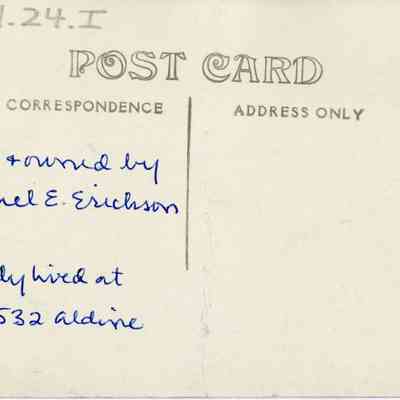 .24.I
POST CARD
CORRESPONDENCE
ADDRESS ONLY
+ owned by
nel E. Erickson
dy lived at
532 Aldine